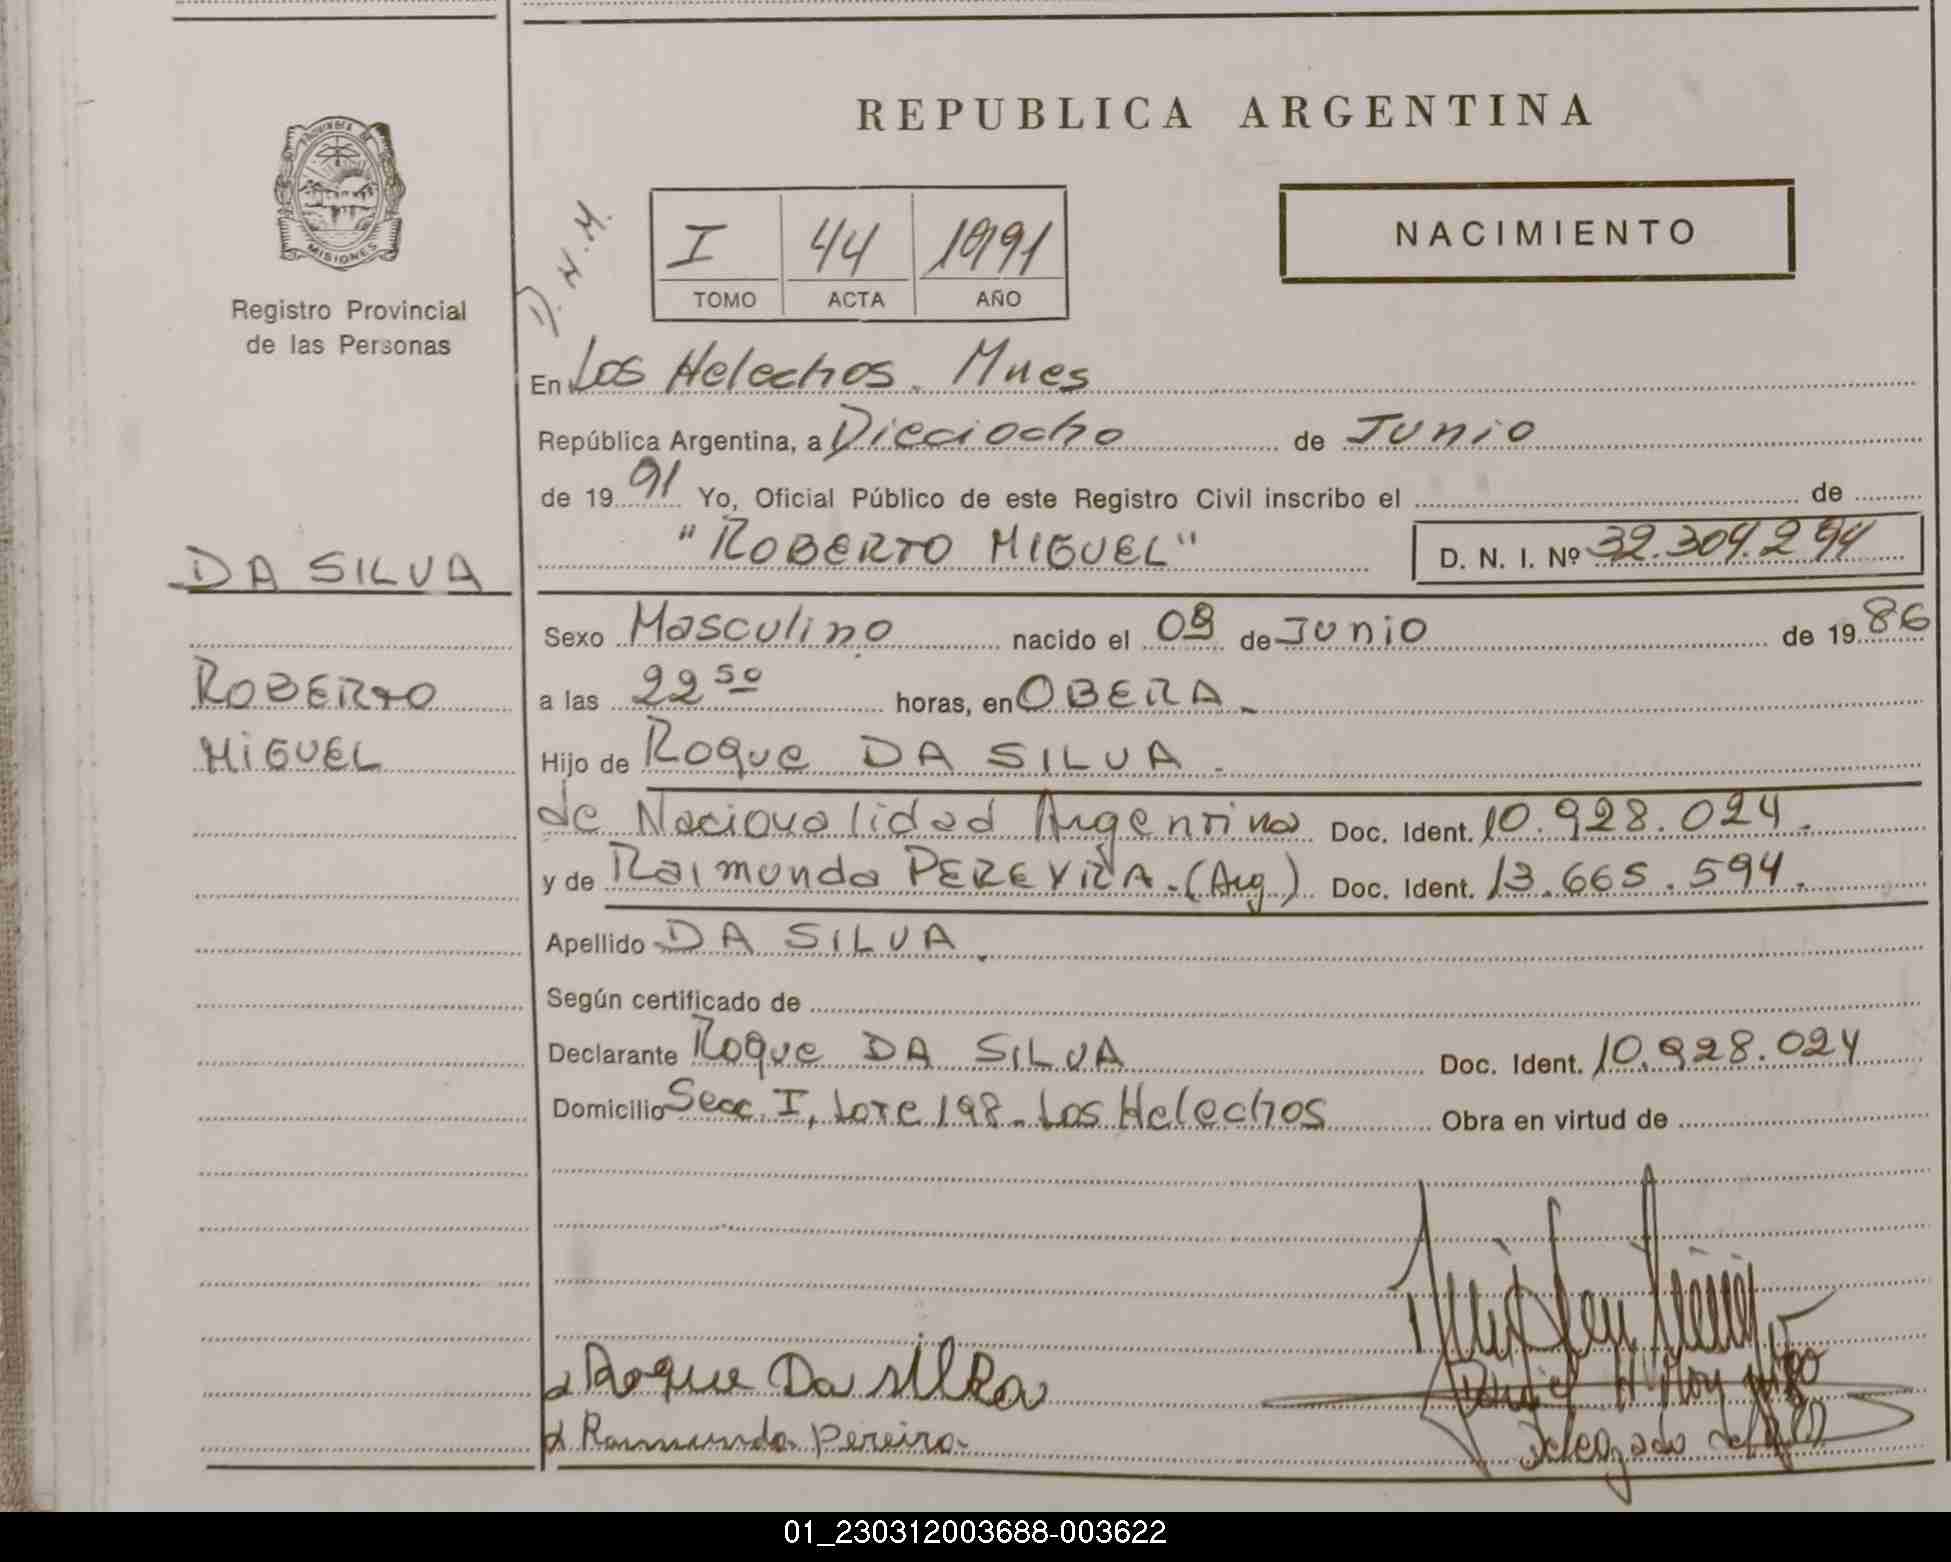 REPUBLICA ARGENTINA
PROVINCIA DE
MISIONES
Registro Provincial
de las Personas
D. N. M.
I 44 1991
TOMO ACTA AÑO
NACIMIENTO
En Los Helechos. Mnes
República Argentina, a Dieciocho de Junio
de 19 91 Yo, Oficial Público de este Registro Civil inscribo el de
"ROBERTO MIGUEL" D. N. I. Nº 32.304.294
DA SILVA
ROBERTO
MIGUEL
Sexo Masculino nacido el de Junio de 19 86
a las 22 50 horas, en OBERA.
Hijo de Roque DA SILVA.
de Nacionalidad Argentina Doc. Ident. 10.928.024.
y de Raimunda PEREYRA. (Arg) Doc. Ident. 13.665.594.
Apellido DA SILVA.
Según certificado de
Declarante Roque DA SILVA Doc. Ident. 10.928.024
Domicilio Secc. I, Lote 198. Los Helechos Obra en virtud de
Roque Da silva
Raimunda Pereira
Delegado
01_230312003688-003622